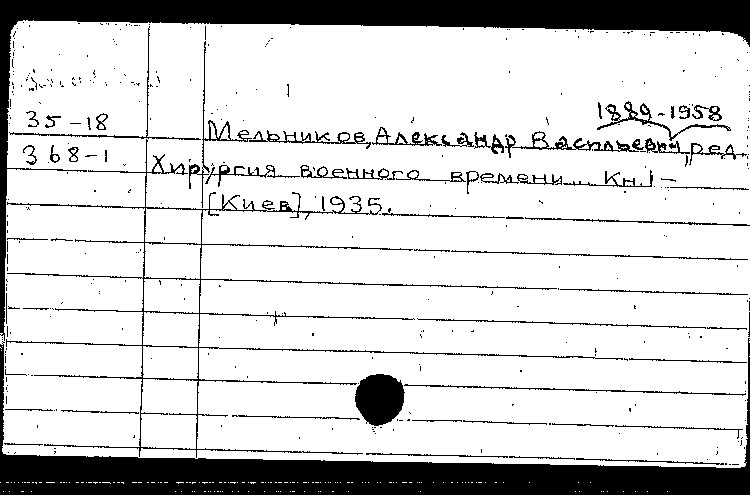 1889-1958
35-18 Мельников, Александр Васильевич, ред.
368-1 Хирургия военного времени... Кн.1-
[Киев], 1935.